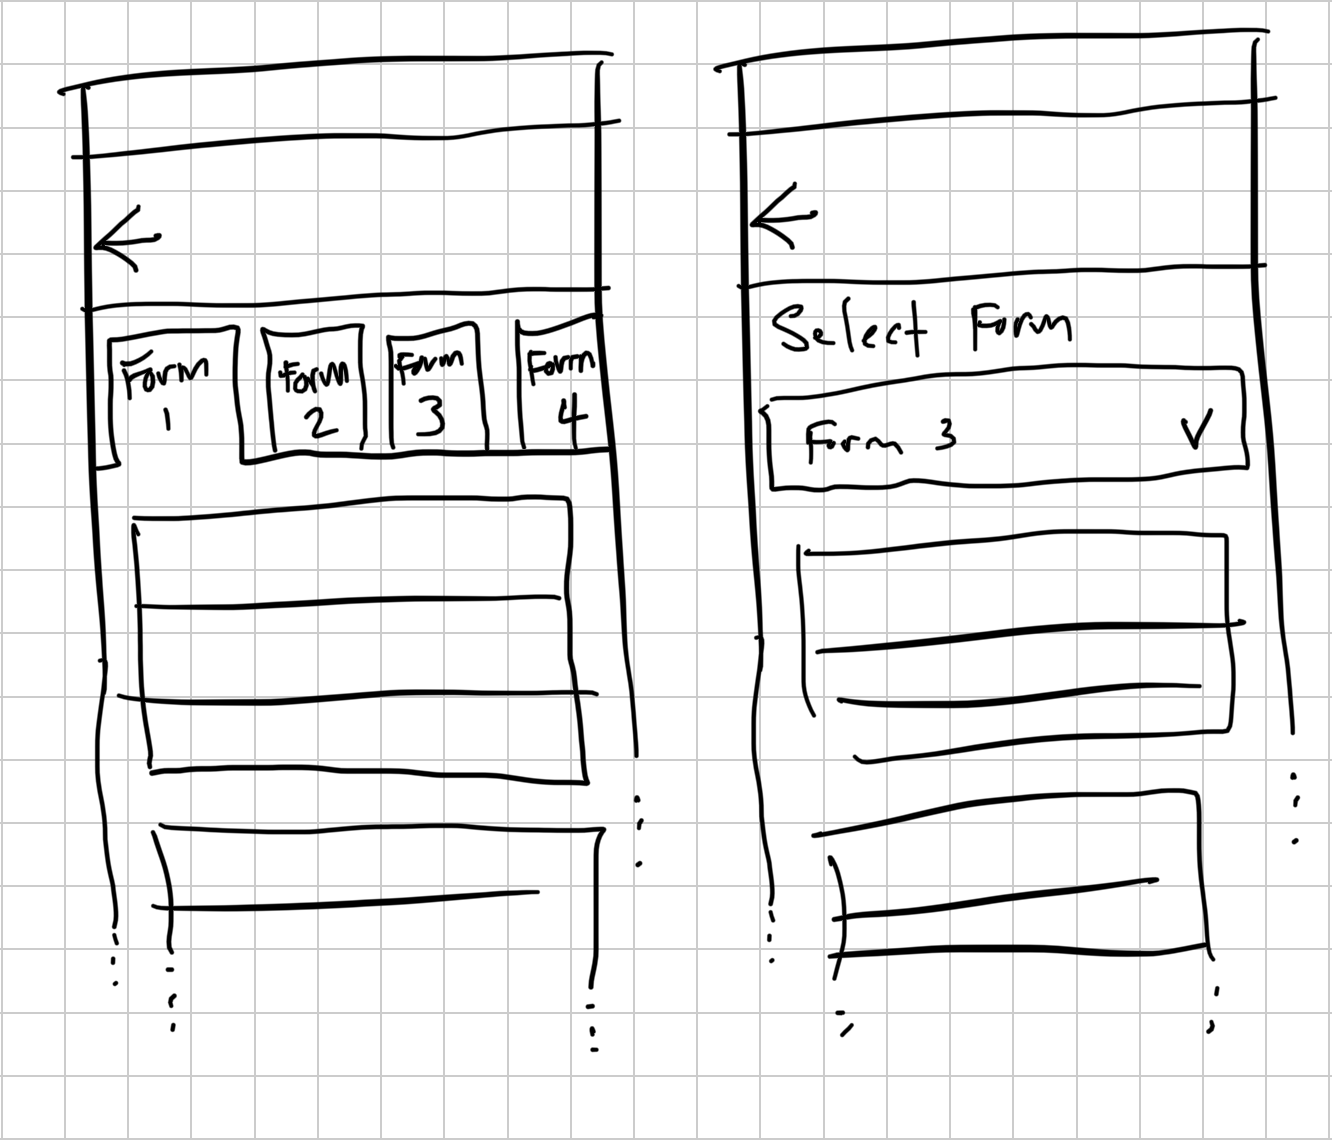 Form
1
Form
2
Form
3
Form
4
Select Form
Form 3